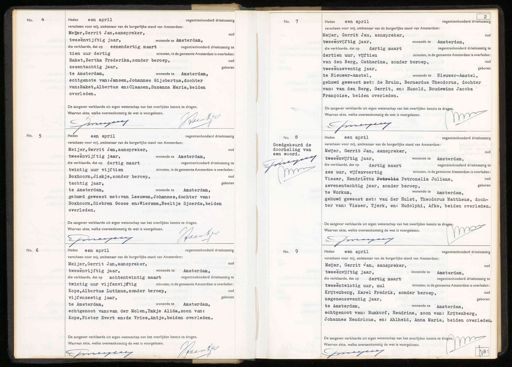 No. 4 Heden een april negentienhonderd drieënzestig
verscheen voor mij, ambtenaar van de burgerlijke stand van Amsterdam:
Meijer, Gerrit Jan, aanspreker, oud
tweeënvijftig jaar, wonende te Amsterdam,
die verklaarde, dat op eenendertig maart negentienhonderd drieënzestig
tien uur dertig minuten, in de gemeente Amsterdam is overleden:
Bertha Frederika, zonder beroep, oud
zesentachtig jaar, geboren
te Amsterdam, wonende te Amsterdam,
echtgenote van Jansen, Johannes Gijsbertus, dochter
overleden.
De aangever verklaarde uit eigen wetenschap van het overlijden kennis te dragen.
Waarvan akte, welke overeenkomstig de wet is voorgelezen.
No. 5 Heden een april negentienhonderd drieënzestig
verscheen voor mij, ambtenaar van de burgerlijke stand van Amsterdam:
Meijer, Gerrit Jan, aanspreker, oud
tweeënvijftig jaar, wonende te Amsterdam,
die verklaarde, dat op dertig maart negentienhonderd drieënzestig
twintig uur vijftien minuten, in de gemeente Amsterdam is overleden:
zonder beroep, oud
tachtig jaar, geboren
te Amsterdam, wonende te Amsterdam,
gehuwd geweest met van Leeuwen, Johannes, dochter van:
overleden.
De aangever verklaarde uit eigen wetenschap van het overlijden kennis te dragen.
Waarvan akte, welke overeenkomstig de wet is voorgelezen.
No. 6 Heden een april negentienhonderd drieënzestig
verscheen voor mij, ambtenaar van de burgerlijke stand van Amsterdam:
Meijer, Gerrit Jan, aanspreker, oud
tweeënvijftig jaar, wonende te Amsterdam,
die verklaarde, dat op achtentwintig maart negentienhonderd drieënzestig
twintig uur vijfenvijftig minuten, in de gemeente Amsterdam is overleden:
Kops, Albertus Luttinus, zonder beroep, oud
vijfenzestig jaar, geboren
te Amsterdam, wonende te Amsterdam,
echtgenoot van van der Molen, Takje Alida, zoon van:
Kops, Pieter Evert en de Vries, Antje, beiden overleden.
De aangever verklaarde uit eigen wetenschap van het overlijden kennis te dragen.
Waarvan akte, welke overeenkomstig de wet is voorgelezen.
2
No. 7 Heden een april negentienhonderd drieënzestig
verscheen voor mij, ambtenaar van de burgerlijke stand van Amsterdam:
Meijer, Gerrit Jan, aanspreker, oud
tweeënvijftig jaar, wonende te Amsterdam,
die verklaarde, dat op dertig maart negentienhonderd drieënzestig
dertien uur, vijftien minuten, in de gemeente Amsterdam is overleden:
van den Berg, Catharina, zonder beroep, oud
tweeënzeventig jaar, geboren
te Nieuwer-Amstel, wonende te Nieuwer-Amstel,
gehuwd geweest met: de Bruin, Bernardus Theodorus, dochter
van: van den Berg, Gerrit, en: Hanold, Boudewina Jacoba
Françoise, beiden overleden.
De aangever verklaarde uit eigen wetenschap van het overlijden kennis te dragen.
Waarvan akte, welke overeenkomstig de wet is voorgelezen.
No. 8 Heden een april negentienhonderd drieënzestig
Goedgekeurd de
doorhaling van
een woord.
verscheen voor mij, ambtenaar van de burgerlijke stand van Amsterdam:
Meijer, Gerrit Jan, aanspreker, oud
tweeënvijftig jaar, wonende te Amsterdam,
die verklaarde, dat op dertig maart negentienhonderd drieënzestig
zes uur, vijfenveertig minuten, in de gemeente Amsterdam is overleden:
Visser, Petronella Juliana, oud
zevenentachtig jaar, zonder beroep, geboren
te Workum, wonende te Amsterdam,
gehuwd geweest met: van der Hulst, Theodorus Mattheus, dochter
van: Visser, Tjerk, en: Rudolphi, Afke, beiden overleden.
De aangever verklaarde uit eigen wetenschap van het overlijden kennis te dragen.
Waarvan akte, welke overeenkomstig de wet is voorgelezen.
No. 9 Heden een april negentienhonderd drieënzestig
verscheen voor mij, ambtenaar van de burgerlijke stand van Amsterdam:
Meijer, Gerrit Jan, aanspreker, oud
tweeënvijftig jaar, wonende te Amsterdam,
die verklaarde, dat op dertig maart negentienhonderd drieënzestig
tweeëntwintig uur, nul minuten, in de gemeente Amsterdam is overleden:
Krijtenberg, Karel Fredrik, zonder beroep, oud
negenenzeventig jaar, geboren
te Amsterdam, wonende te Amsterdam,
echtgenoot van: Rumkorf, Hendrina, zoon van: Krijtenberg,
Johannes Hendricus, en: Ahlheid, Anna Maria, beiden overleden.
De aangever verklaarde uit eigen wetenschap van het overlijden kennis te dragen.
Waarvan akte, welke overeenkomstig de wet is voorgelezen.